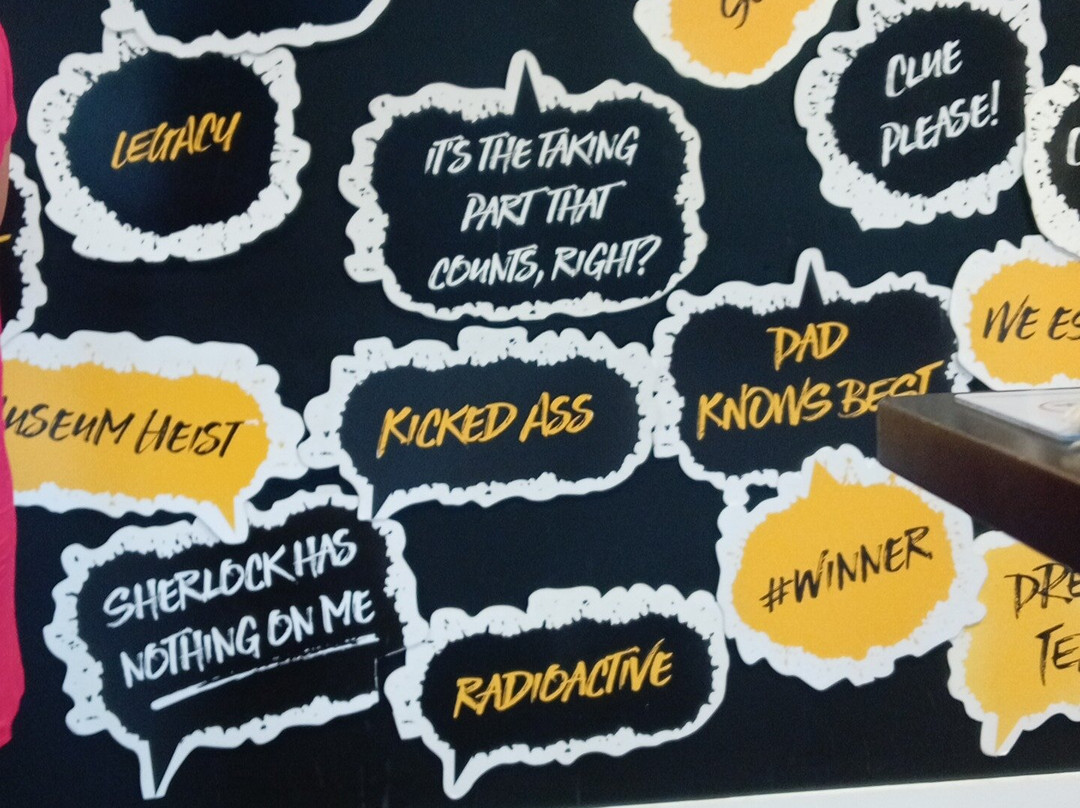 LEGACY
IT'S THE TAKING
PART THAT
COUNTS, RIGHT?
CLUE
PLEASE!
DAD
KNOWS BEST
WE ES
USEUM HEIST
KICKED ASS
SHERLOCK HAS
NOTHING ON ME
#WINNER
RADIOACTIVE
DRE
TE